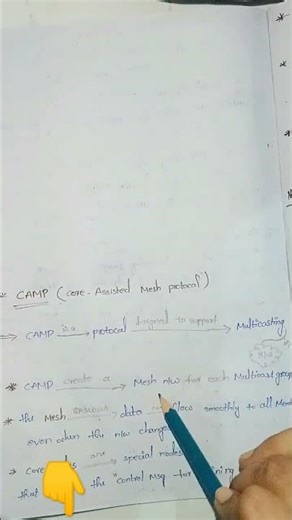 CAMP (Core-Assisted Mesh protocol)
⇒ CAMP is a → protocol designed to support → Multicasting
* CAMP create a → Mesh n/w for each Multicast group
* the Mesh ensures → data flow smoothly to all
even when the n/w changes
→ core are special nodes
that the "control Msg for